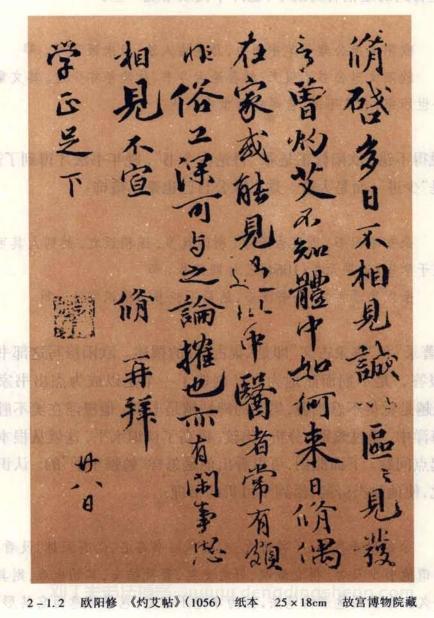 脩啓多日不相見誠以區〻見發
言曾灼艾不知體中如何来日脩偶
在家或能見過此中醫者常有頗
非俗工深可与之論搉也亦有閑事思
相見不宣 脩 再拜 廿八日
学正足下
2-1.2 欧阳修 《灼艾帖》(1056) 纸本 25×18cm 故宫博物院藏